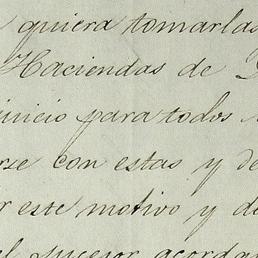 quiera tomarlas
Haciendas de
juicio para todos
rse con estas y de
r este motivo y de
el sucesor acorda